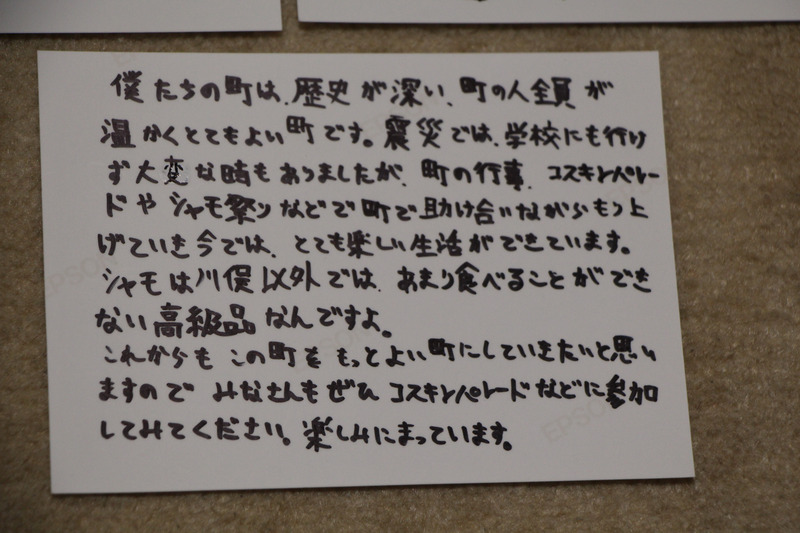 僕たちの町は、歴史が深い、町の人全員が
温かくとてもよい町です。震災では、学校にも行け
ず大変な時もありましたが、町の行事、コスキンパレー
ドやシャモ祭りなどで町で助け合いながらもり上
げていき今では、とても楽しい生活ができています。
シャモは川俣以外では、あまり食べることができ
ない高級品なんですよ。
これからもこの町をもっとよい町にしていきたいと思い
ますのでみなさんもぜひコスキンパレードなどに参加
してみてください。楽しみにまっています。